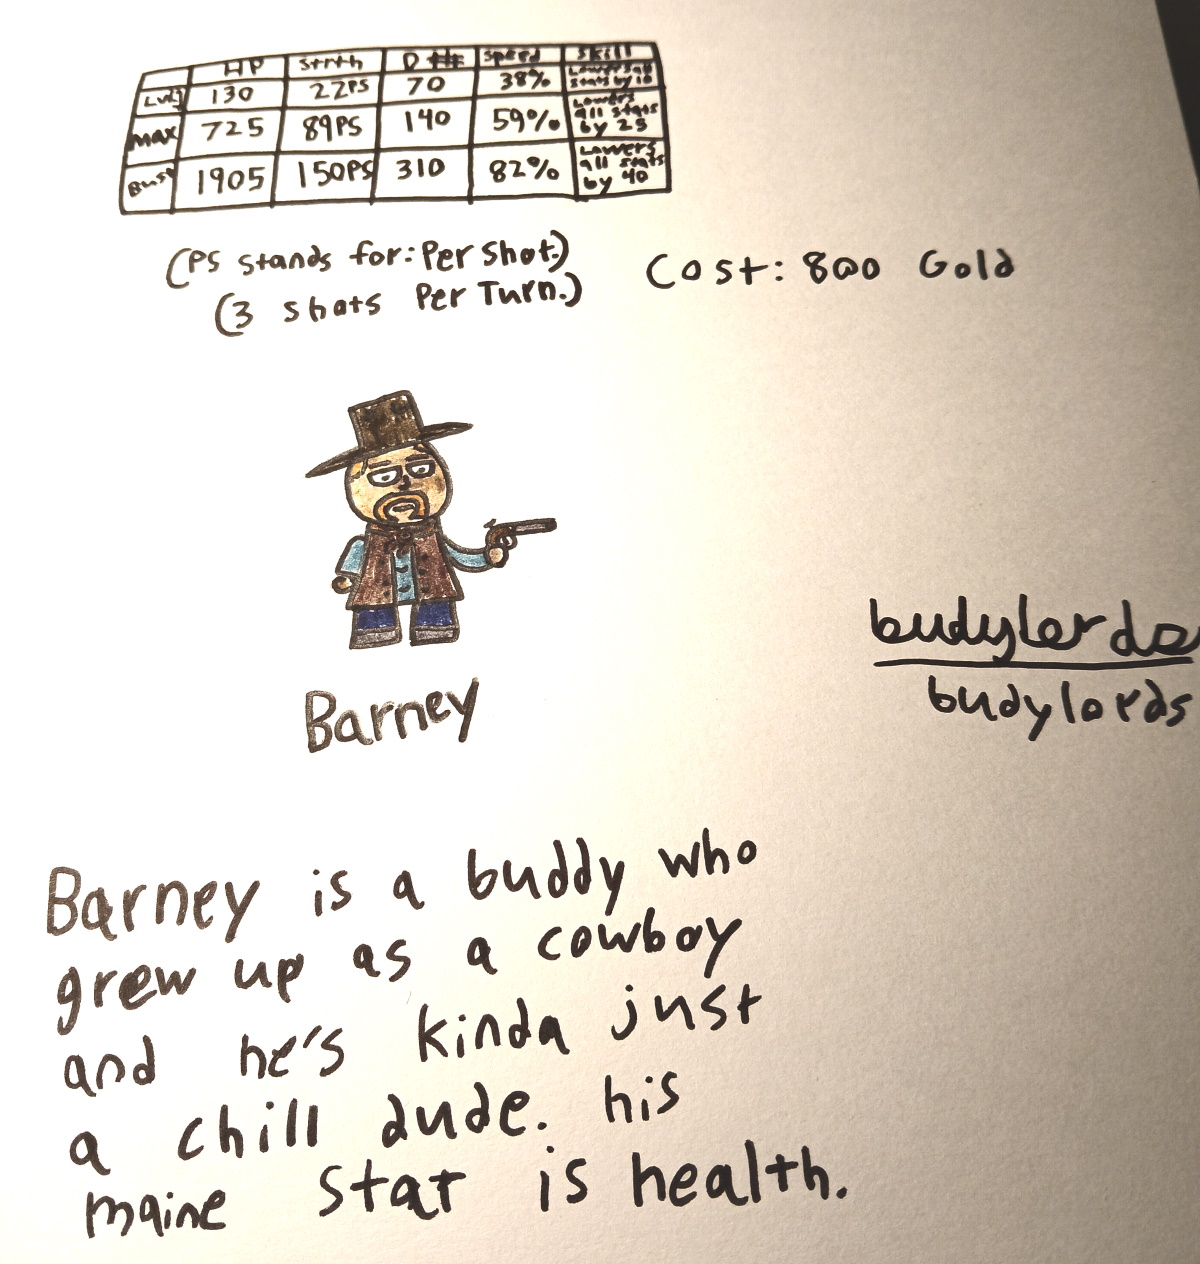 HP Strth D Speed Skill
Lvl1 130 22PS 70 38% Lowers all stats by 10
Max 725 89PS 140 59% Lowers all stats by 25
Bust 1905 150PS 310 82% Lowers all stats by 40
(PS stands for: Per Shot.)
(3 shots Per Turn.)
Cost: 800 Gold
budylords
budylords
Barney
Barney is a buddy who
grew up as a cowboy
and he's kinda just
a chill dude. his
maine stat is health.